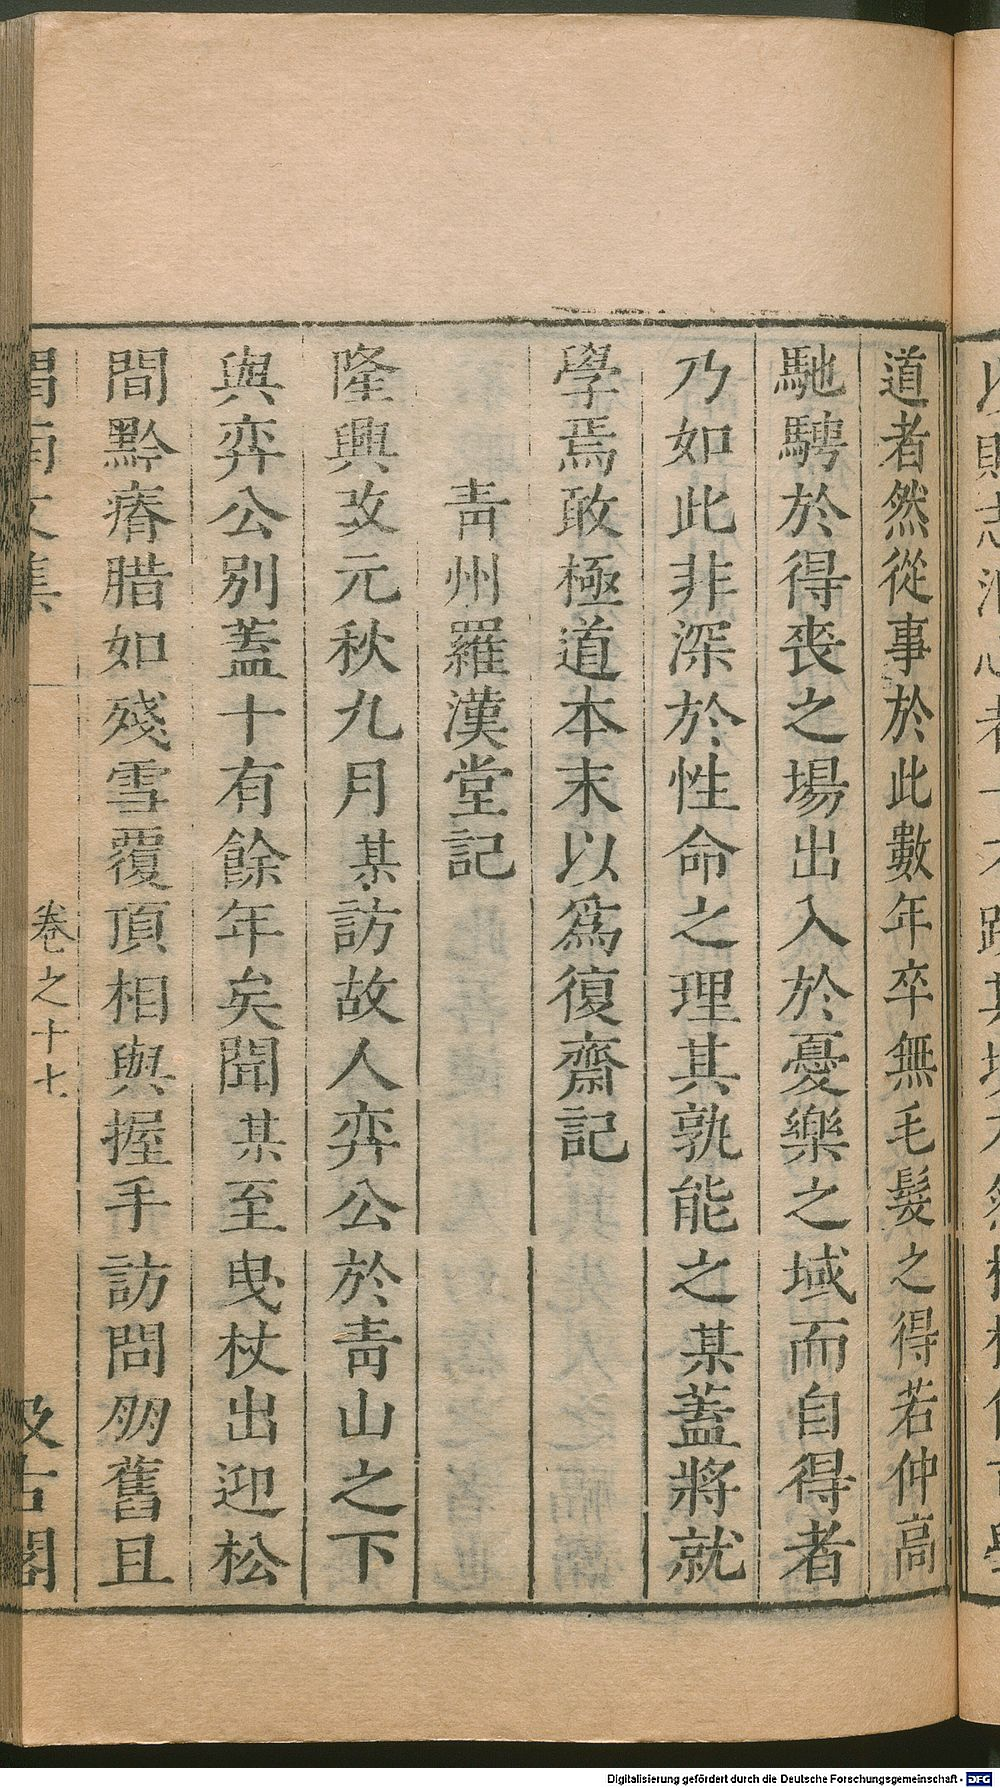 道者然從事於此數年卒無毛髮之得若仲高
馳騁於得喪之場出入於憂樂之域而自得者
乃如此非深於性命之理其孰能之某蓋將就
學焉敢極道本末以爲復齋記
靑州羅漢堂記
隆興攺元秋九月某訪故人弈公於靑山之下
與弈公別蓋十有餘年矣聞某至曳杖出迎松
間黔瘠腊如殘雪覆頂相與握手訪問朋舊且
渭南文集 卷之十七 汲古閣
Digitalisierung gefördert durch die Deutsche Forschungsgemeinschaft - DFG